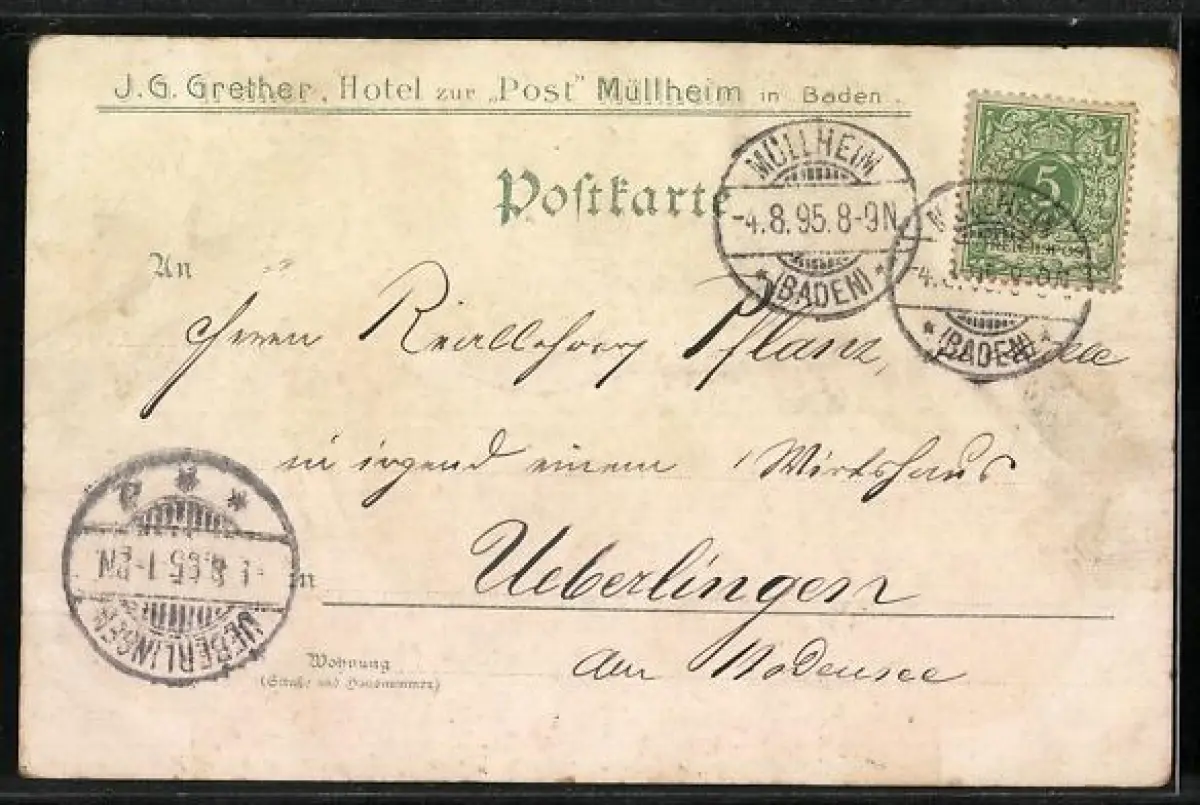 J. G. Grether, Hotel zur „Post" Müllheim in Baden.
Postkarte
MÜLLHEIM
-4.8.95.8-9N
* (BADEN) *
5
MÜLLHEIM
* (BADEN) *
An
Herrn Reallehrer Pflanz,
in irgend einem Wirtshaus
in Ueberlingen
am Bodensee
UEBERLINGEN
Wohnung
(Straße und Hausnummer)